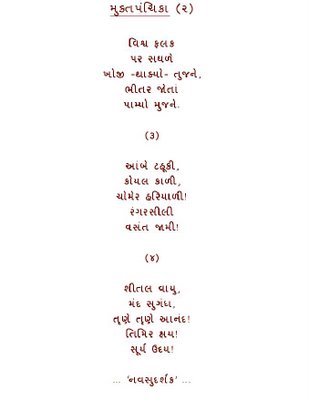 મુક્તપંચિકા (૨)
વિશ્વ ફલક
પર સઘળે
ખોજી -થાક્યો- તુજને,
ભીતર જોતાં
પામ્યો મુજને.
(૩)
આંબે ટહૂકી,
કોયલ કાળી,
ચોમેર હરિયાળી!
રંગરસીલી
વસંત જામી!
(૪)
શીતલ વાયુ,
મંદ સુગંધ,
તૃણે તૃણે આનંદ!
તિમિર ક્ષય!
સૂર્ય ઉદય!
... 'નવસુદર્શક' ...